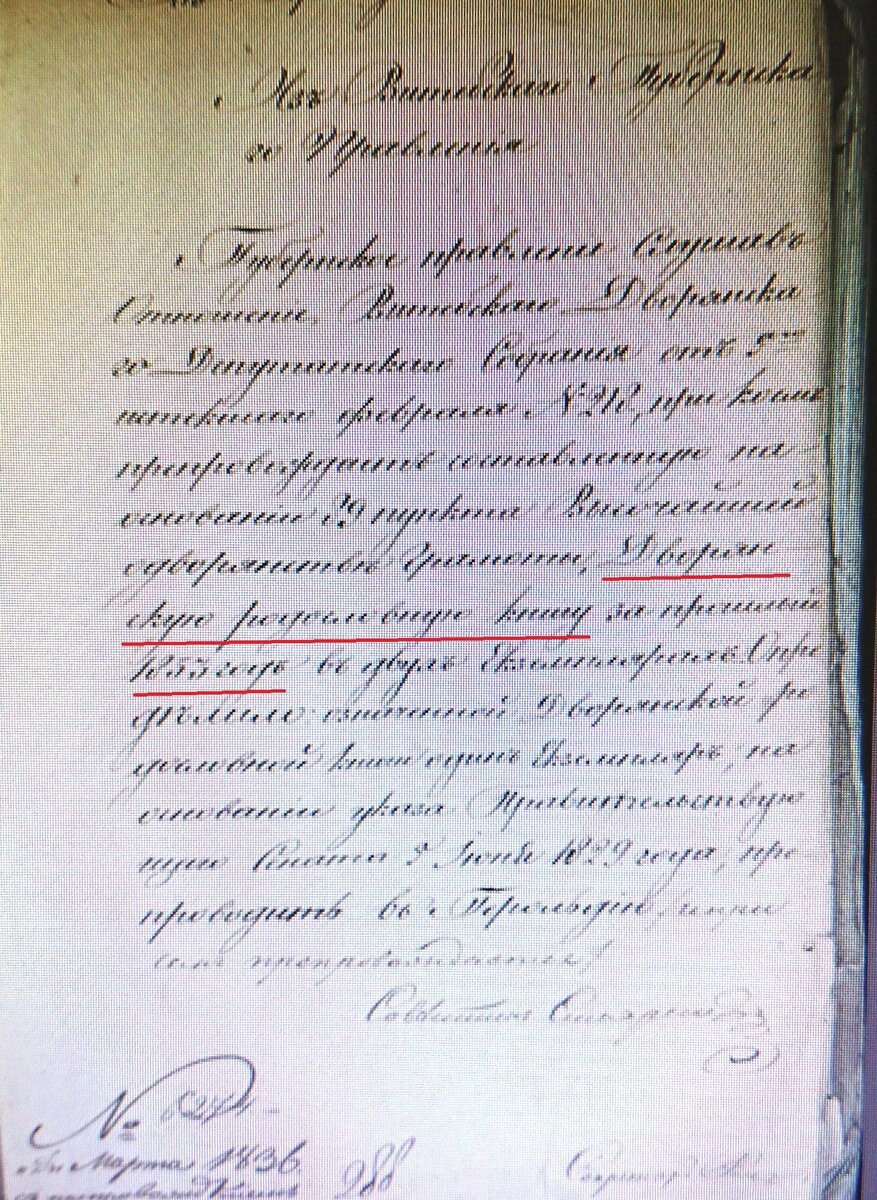 Изъ Витебскаго Губернска
го Правленія
Губернское правленіе Слушавъ
Отношеніе Витебскаго Дворянска
го Депутатскаго Собранія отъ 5го
февраля № 212, при коемъ
препровождаетъ составленную на
основаніи 79 пункта Высочайшей
о дворянствѣ Грамоты, Дворян
скую родословную книгу за прошлый
1835 годъ въ двухъ Экземплярахъ Опре
дѣлило: означенной Дворянской ро
дословной книги одинъ Экземпляръ, на
основаніи указа Правительствую
щаго Сената 5 Іюня 1829 года, пре
проводить въ Герольдію,
симъ препровождается
Совѣтникъ
№
Марта 1836
988
Секретарь